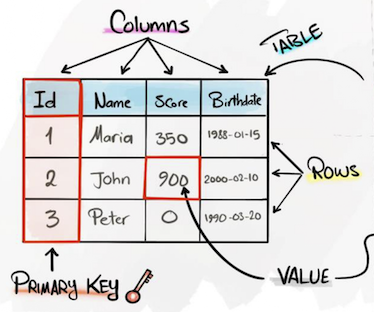 Columns
TABLE
Id Name Score Birthdate
1 Maria 350 1988-01-15
2 John 900 2000-02-10
3 Peter 0 1990-03-20
Rows
PRIMARY KEY
VALUE